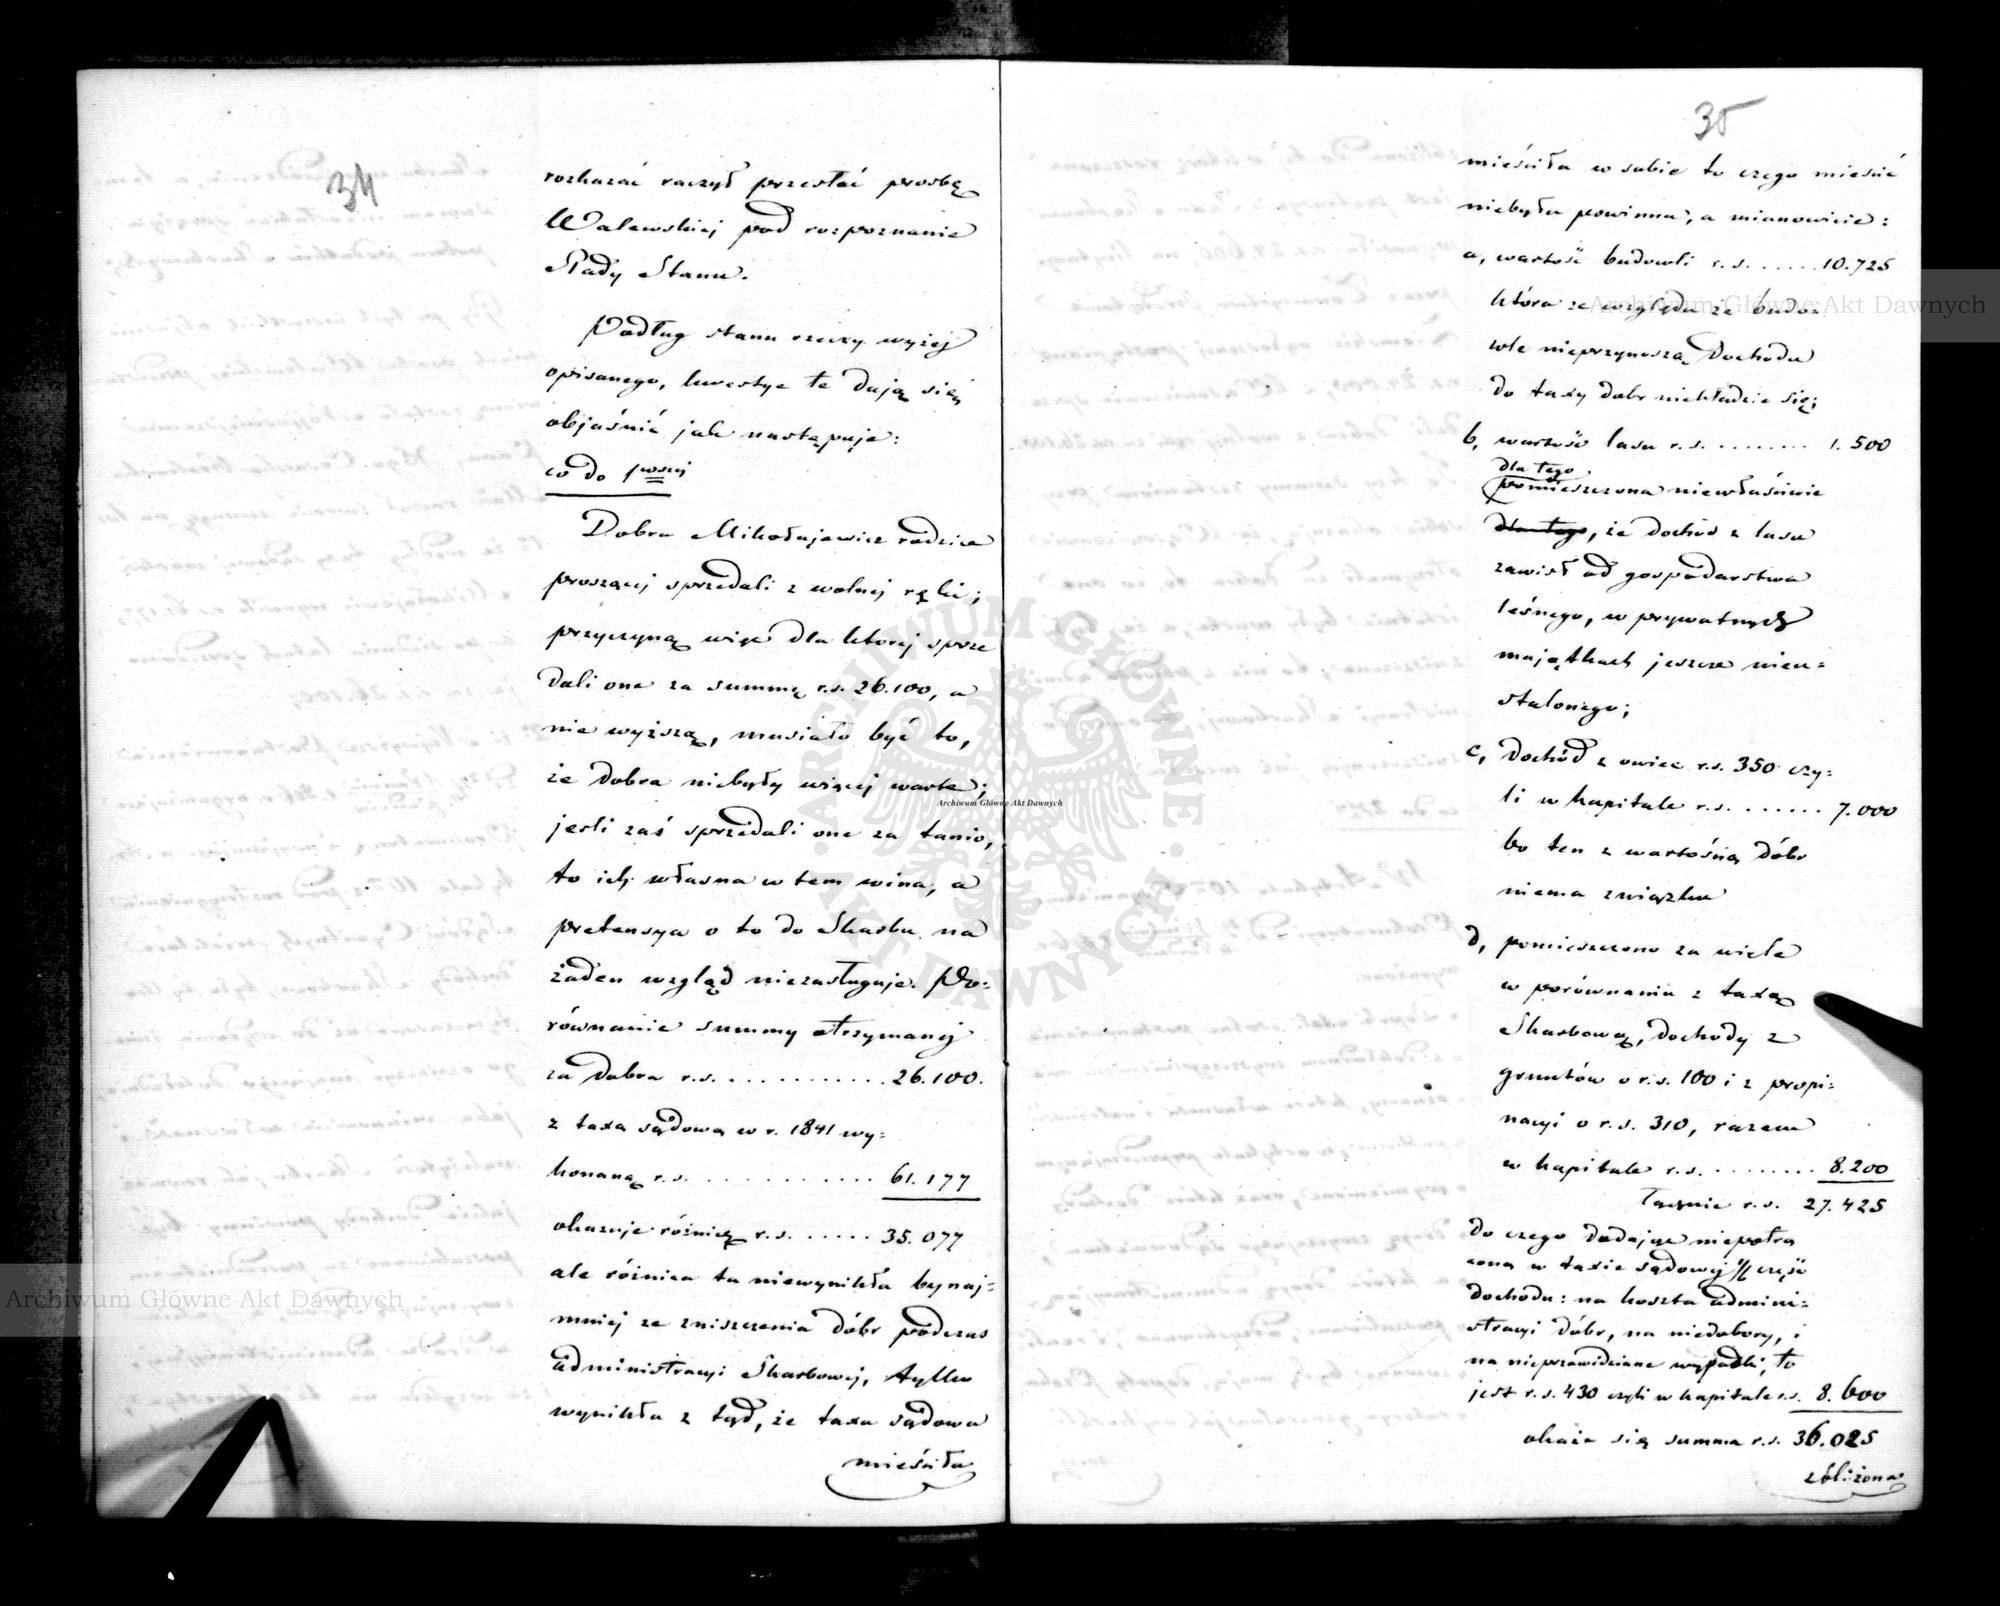 34
rozkazać raczył przesłać prośbę
Walewskiej pod rozpoznanie
Rady Stanu.
Podług stanu rzeczy wyżej
opisanego, kwestye te dają się
objaśnić jak następuje:
co do 1wszej
Dobra Mikołajewice rodzice
proszącej sprzedali z wolnej ręki;
przyczyną więc dla której sprze
dali one za summę r.s. 26.100, a
nie wyższą, musiało być to,
że dobra niebyły więcej warte;
jeśli zaś sprzedali one za tanio,
to ich własna w tem wina, a
pretensya o to do Skarbu na
żaden wzgląd niezasługuje. Po=
równanie summy otrzymanej
za dobra r.s. . . . . . . . . . . . 26.100.
z taxą sądową w r. 1841 wy=
konaną r.s. . . . . . . . . . . . . 61.177
okazuje różnicę r.s. . . . . . 35.077
ale różnica ta niewynikła bynaj=
mniej ze zniszczenia dóbr podczas
administracyi Skarbowej, tylko
wynikła z tąd, że taxa sądowa
mieściła
35
mieściła w sobie to czego mieścić
niebyła powinna, a mianowicie:
a, wartość budowli r.s. . . . . . 10.725
która ze względu że budo=
wle nieprzynoszą dochodu
do taxy dóbr niekładzie się;
b, wartość lasu r.s. . . . . . . . . 1.500
dla tego
pomieszczona niewłaściwie
dla tego, że dochód z lasu
zawisł od gospodarstwa
leśnego, w prywatnych
majątkach jeszcze nieu=
stalonego;
c, dochód z owiec r.s. 350 czy=
li w kapitale r.s. . . . . . . 7.000
bo ten z wartością dóbr
niema związku
d, pomieszczono za wiele
w porównaniu z taxą
Skarbową, dochody z
gruntów o r.s. 100 i z propi=
nacyi o r.s. 310, razem
w kapitale r.s. . . . . . . . . 8.200
Łącznie r.s. 27.425
do czego dodając niepotrą
coną w taxie sądowej część
dochodu: na koszta admini=
stracyi dóbr, na niedobory, i
na nieprzewidziane wypadki, to
jest r.s. 430 czyli w kapitale r.s. 8.600
okaże się summa r.s. 36.025
zbliżona
Archiwum Główne Akt Dawnych
Archiwum Główne Akt Dawnych
Archiwum Główne Akt Dawnych
ARCHIWUM GŁÓWNE
AKT DAWNYCH